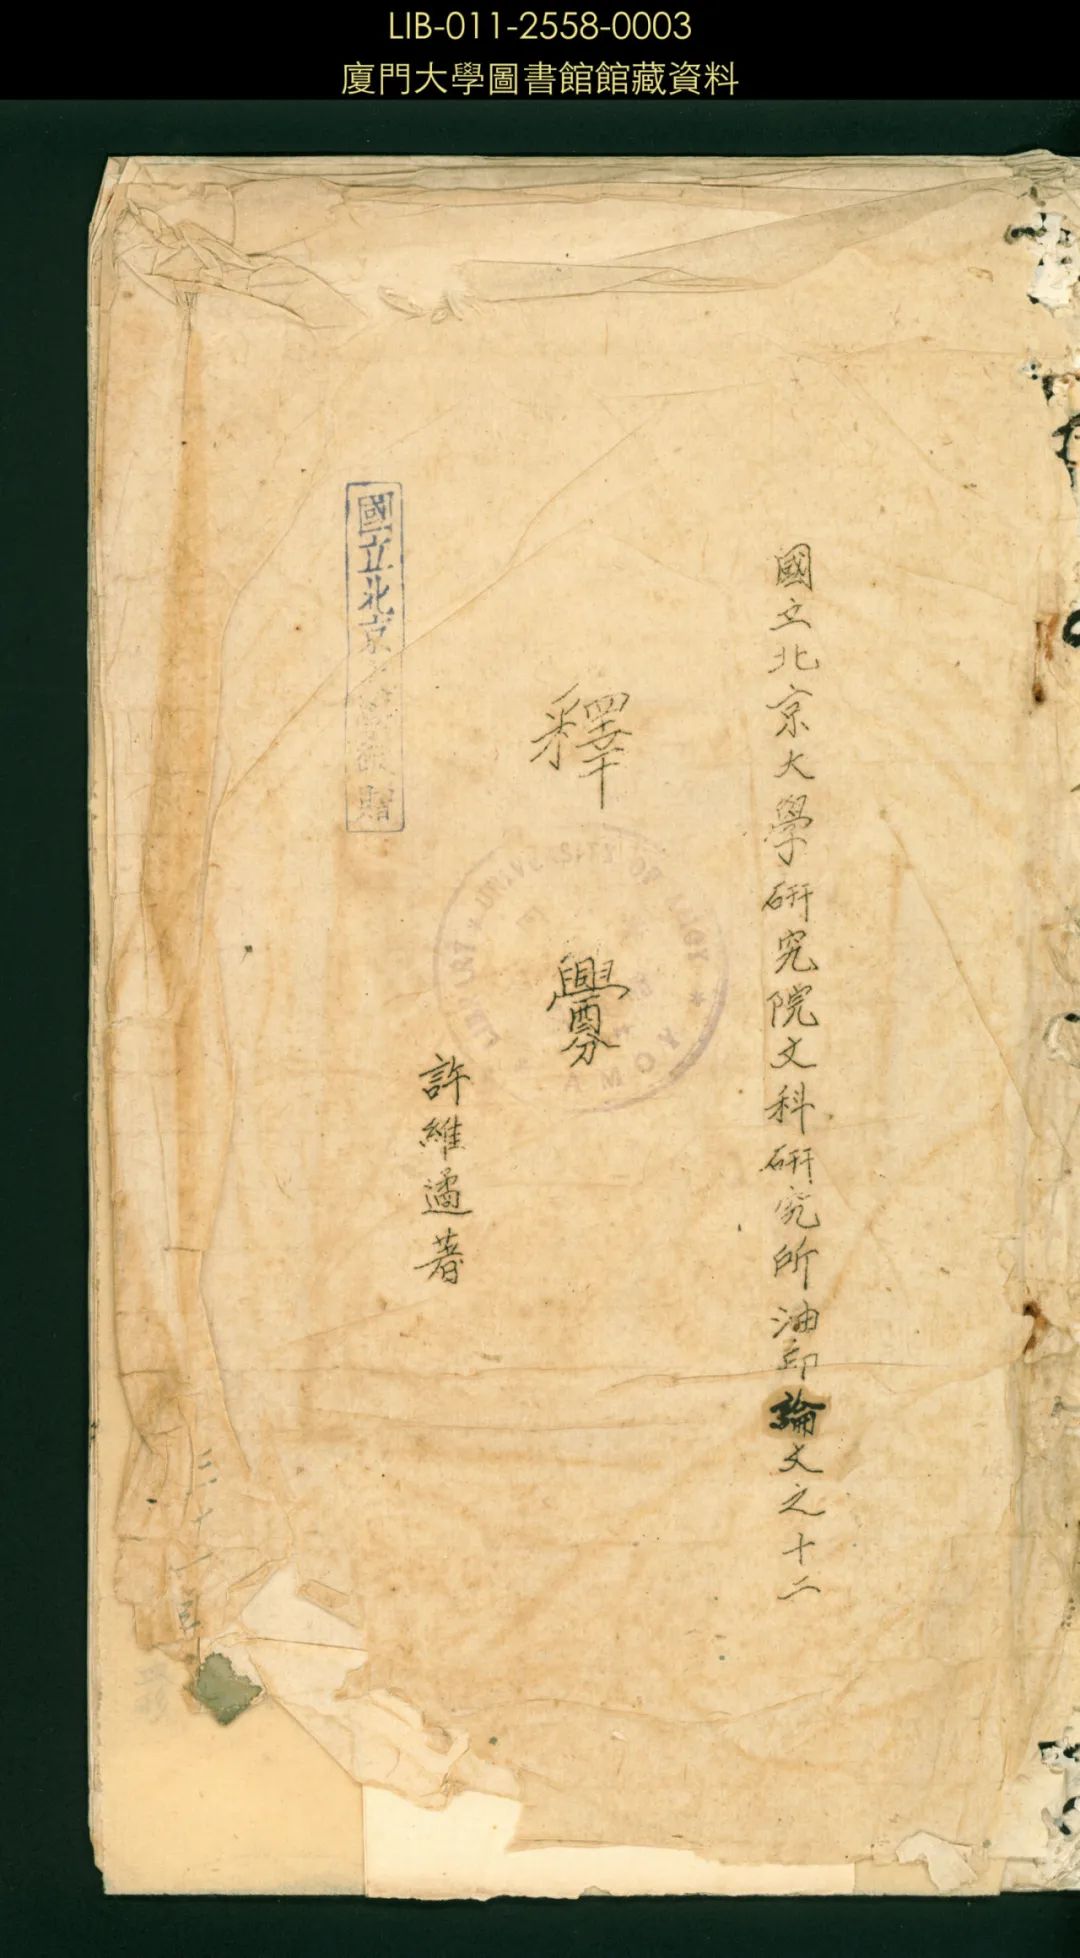 LIB-011-2558-0003
廈門大學圖書館館藏資料
國立北京大學研究院文科研究所油印論文之十二
釋釁
許維遹著
國立北京 贈
LIBRARY * UNIVERSITY OF AMOY * AMOY
三十一年